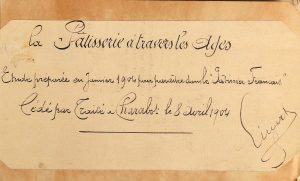 La Pâtisserie à travers les Ages
Etude préparée en Janvier 1904 pour paraître dans le "Pâtissier Français"
Cédé par Traité à Charabot le 8 Avril 1904